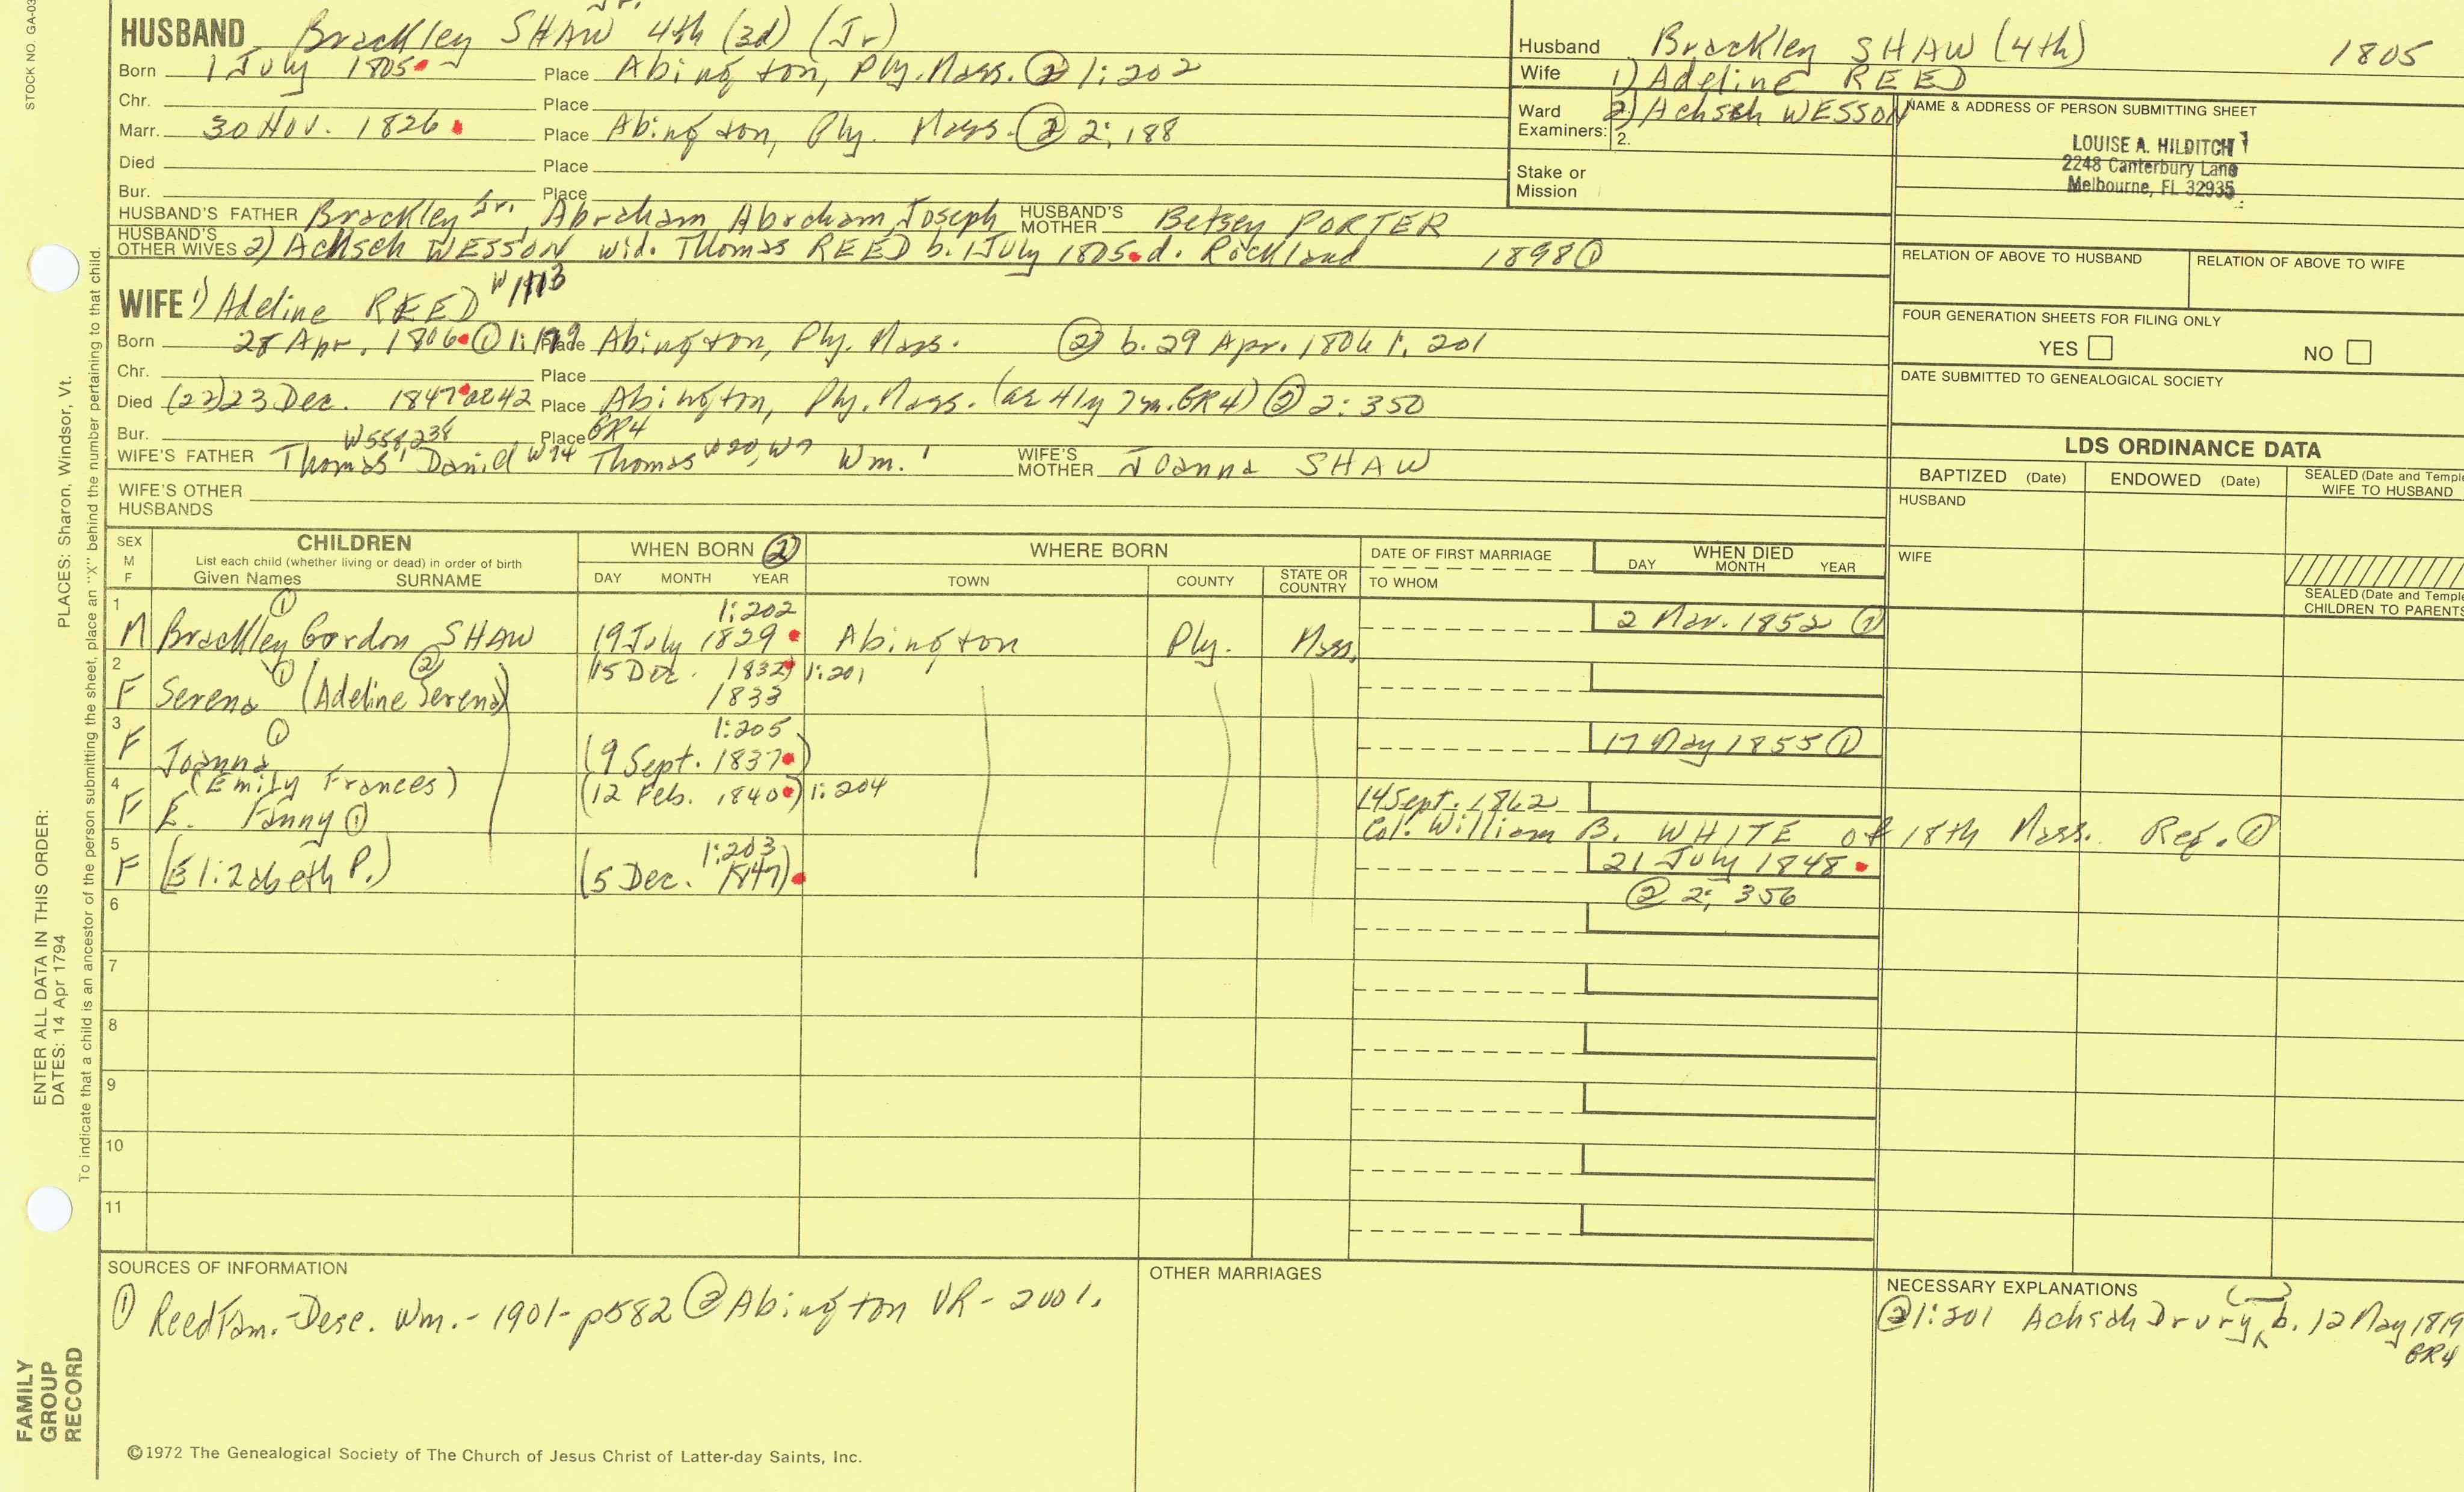 HUSBAND Brackley SHAW 4th (3d) (Jr)
Born 1 July 1805 Place Abington, Ply. Mass. ② 1:202
Chr. Place
Marr. 30 Nov. 1826 Place Abington, Ply. Mass. ② 2:188
Died Place
Bur. Place
HUSBAND'S FATHER Brackley Jr., Abraham, Abraham, Joseph HUSBAND'S MOTHER Betsey PORTER
HUSBAND'S OTHER WIVES 2) Achseh WESSON wid. Thomas REED b. 1 July 1805 d. Rockland 1898 ①
WIFE 1) Adeline REED W1113
Born 28 Apr. 1806 ① 1:199 Place Abington, Ply. Mass. ② b. 29 Apr. 1806 1:201
Chr. Place
Died (22) 23 Dec. 1847 ae 42 Place Abington, Ply. Mass. (ae 41y 7m. GR4) ② 2:350
Bur. Place GR4
W558,238
WIFE'S FATHER Thomas, Daniel W74 Thomas W20, W7 Wm.1 WIFE'S MOTHER Joanna SHAW
WIFE'S OTHER HUSBANDS
Husband Brackley SHAW (4th) 1805
Wife 1) Adeline REED
Ward 2) Achseh WESSON
Examiners: 2.
Stake or Mission
NAME & ADDRESS OF PERSON SUBMITTING SHEET
LOUISE A. HILDITCH
2248 Canterbury Lane
Melbourne, FL 32935
RELATION OF ABOVE TO HUSBAND RELATION OF ABOVE TO WIFE
FOUR GENERATION SHEETS FOR FILING ONLY
YES NO
DATE SUBMITTED TO GENEALOGICAL SOCIETY
LDS ORDINANCE DATA
BAPTIZED (Date) ENDOWED (Date) SEALED (Date and Temple
WIFE TO HUSBAND
HUSBAND
WIFE
SEALED (Date and Temple
CHILDREN TO PARENTS
SEX M F CHILDREN WHEN BORN ② WHERE BORN DATE OF FIRST MARRIAGE WHEN DIED
List each child (whether living or dead) in order of birth
Given Names SURNAME DAY MONTH YEAR TOWN COUNTY STATE OR COUNTRY TO WHOM DAY MONTH YEAR
1 ① 1:202
M Brackley Gordon SHAW 19 July 1829 Abington Ply. Mass. 2 Mar. 1852 ①
2 ① ② 15 Dec. 1832) 1:201
F Serena (Adeline Serena) 1833
3 ① 1:205
F Joanna (9 Sept. 1837) 17 May 1855 ①
4 (Emily Frances) (12 Feb. 1840) 1:204 14 Sept. 1862
F E. Fanny ① Col. William B. WHITE of 18th Mass. Reg. ①
5 1:203
F (Elizabeth P.) (5 Dec. 1847) 21 July 1848
6 ② 2:356
7
8
9
10
11
SOURCES OF INFORMATION
① Reed Fam.-Desc. Wm.-1901-p582 ② Abington VR-2001.
OTHER MARRIAGES
NECESSARY EXPLANATIONS
② 1:201 Achsah Drury ( ) b. 12 May 1819
GR4
©1972 The Genealogical Society of The Church of Jesus Christ of Latter-day Saints, Inc.
STOCK NO. GA-03
PLACES: Sharon, Windsor, Vt.
ENTER ALL DATA IN THIS ORDER:
DATES: 14 Apr 1794
To indicate that a child is an ancestor of the person submitting the sheet, place an "X" behind the number pertaining to that child.
FAMILY
GROUP
RECORD